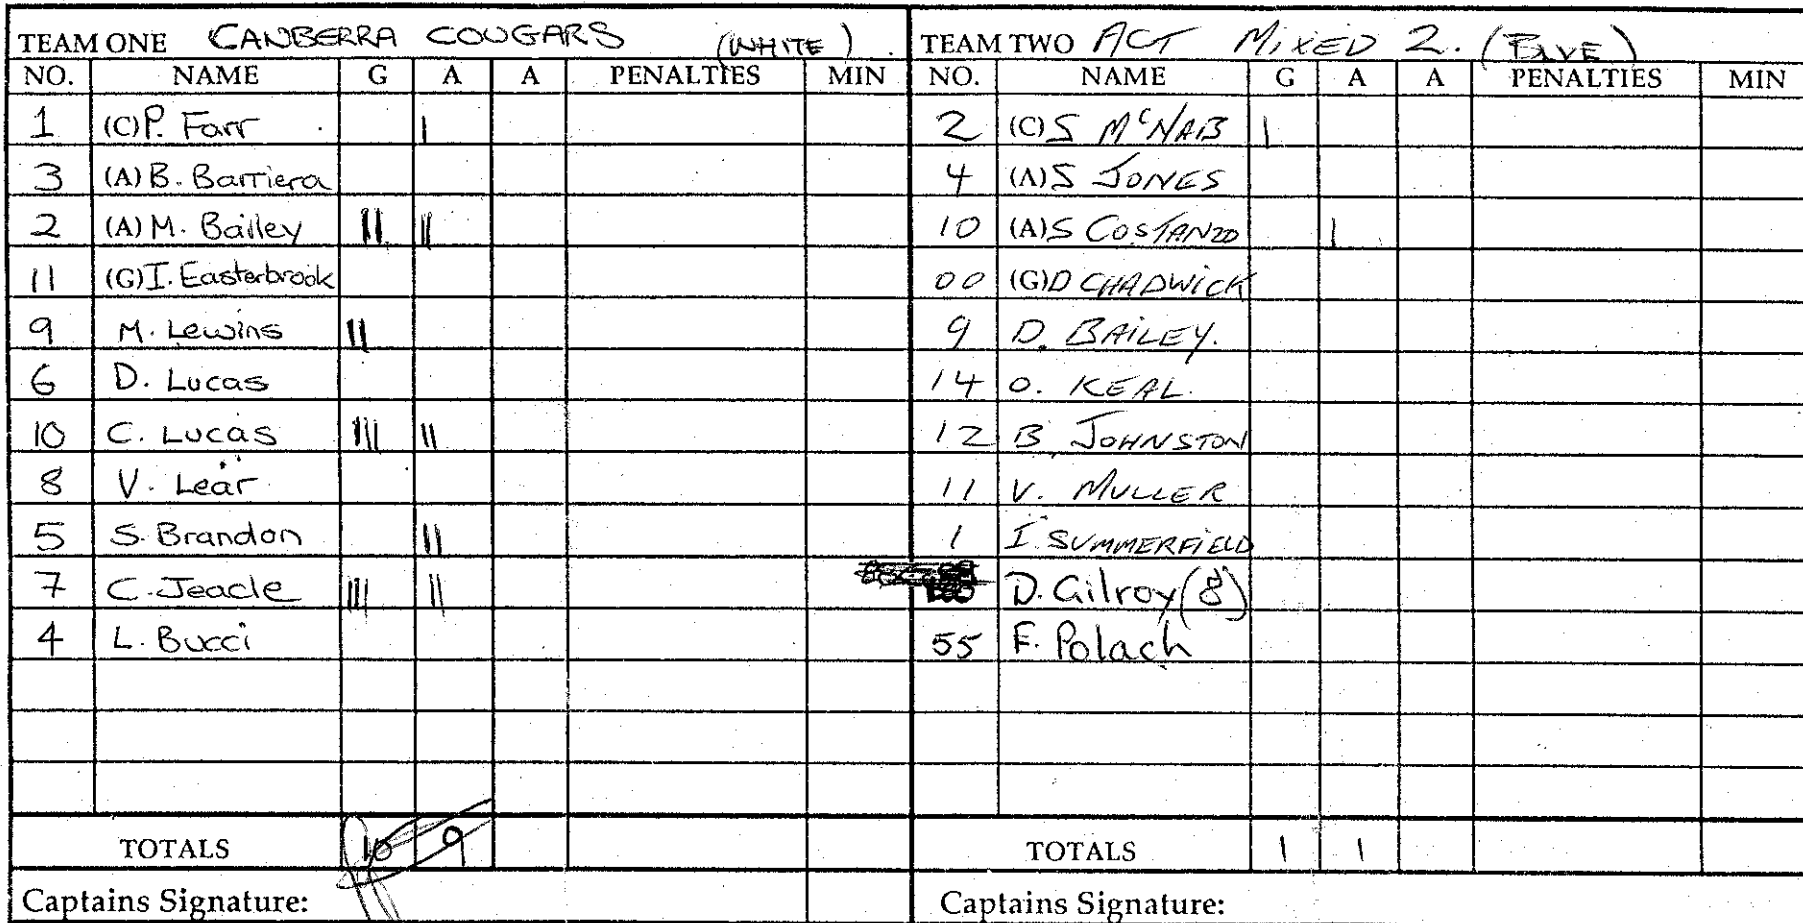 TEAM ONE CANBERRA COUGARS (WHITE)
NO. NAME G A A PENALTIES MIN
1 (C) P. Farr I
3 (A) B. Barriera
2 (A) M. Bailey II II
11 (G) I. Easterbrook
9 M. Lewins II
6 D. Lucas
10 C. Lucas III II
8 V. Lear
5 S. Brandon II
7 C. Jeacle III II
4 L. Bucci
TOTALS 10 9
Captains Signature:
TEAM TWO ACT MIXED 2. (BLUE)
NO. NAME G A A PENALTIES MIN
2 (C) S McNAB I
4 (A) S JONES
10 (A) S COSTANZO I
00 (G) D CHADWICK
9 D. BAILEY.
14 O. KEAL.
12 B JOHNSTON
11 V. MULLER
1 I SUMMERFIELD
D. Gilroy (8)
55 F. Polach
TOTALS 1 1
Captains Signature: